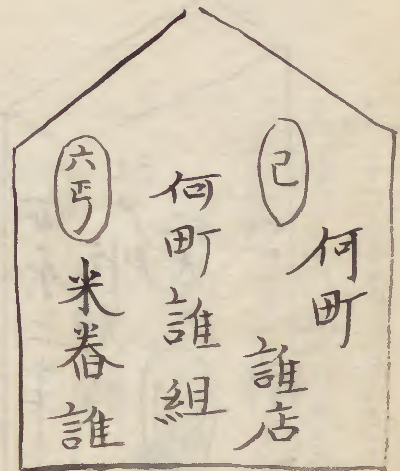 何町
誰店
巳
何町誰組
六号
米舂誰